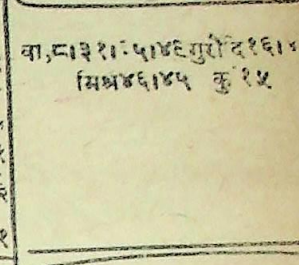 वा,८।३१।-५।४६ गुरौ द १६।
मिश्र४६।४५ कु १५